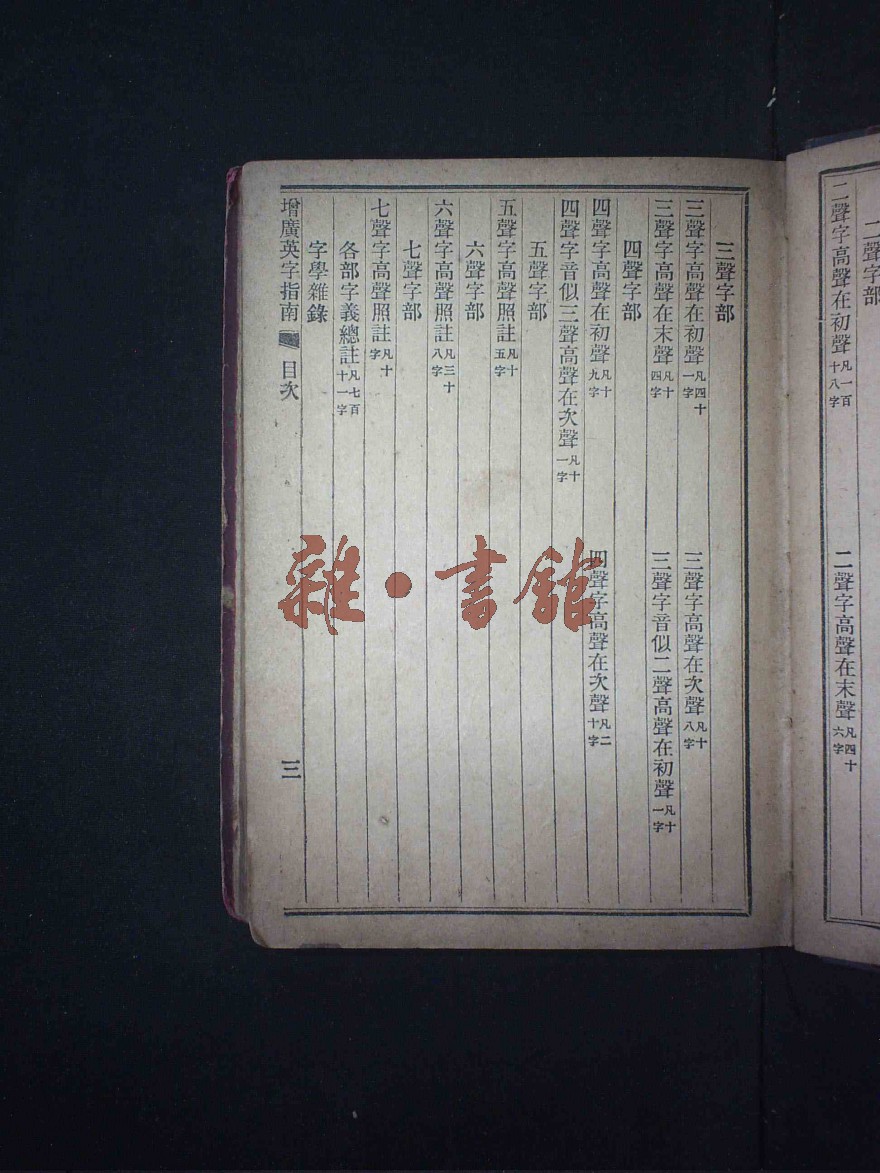 二聲字部
二聲字高聲在初聲凡一百十八字
二聲字高聲在末聲凡四十六字
三聲字部
三聲字高聲在初聲凡四十一字
三聲字高聲在次聲凡十八字
三聲字高聲在末聲凡十四字
三聲字音似二聲高聲在初聲凡十一字
四聲字部
四聲字高聲在初聲凡十九字
四聲字高聲在次聲凡二十字
四聲字音似三聲高聲在次聲凡十一字
五聲字部
五聲字高聲照註凡十五字
六聲字部
六聲字高聲照註凡三十八字
七聲字部
七聲字高聲照註凡十字
各部字義總註凡七百十一字
字學雜錄
增廣英字指南
目次
三
雜·書館